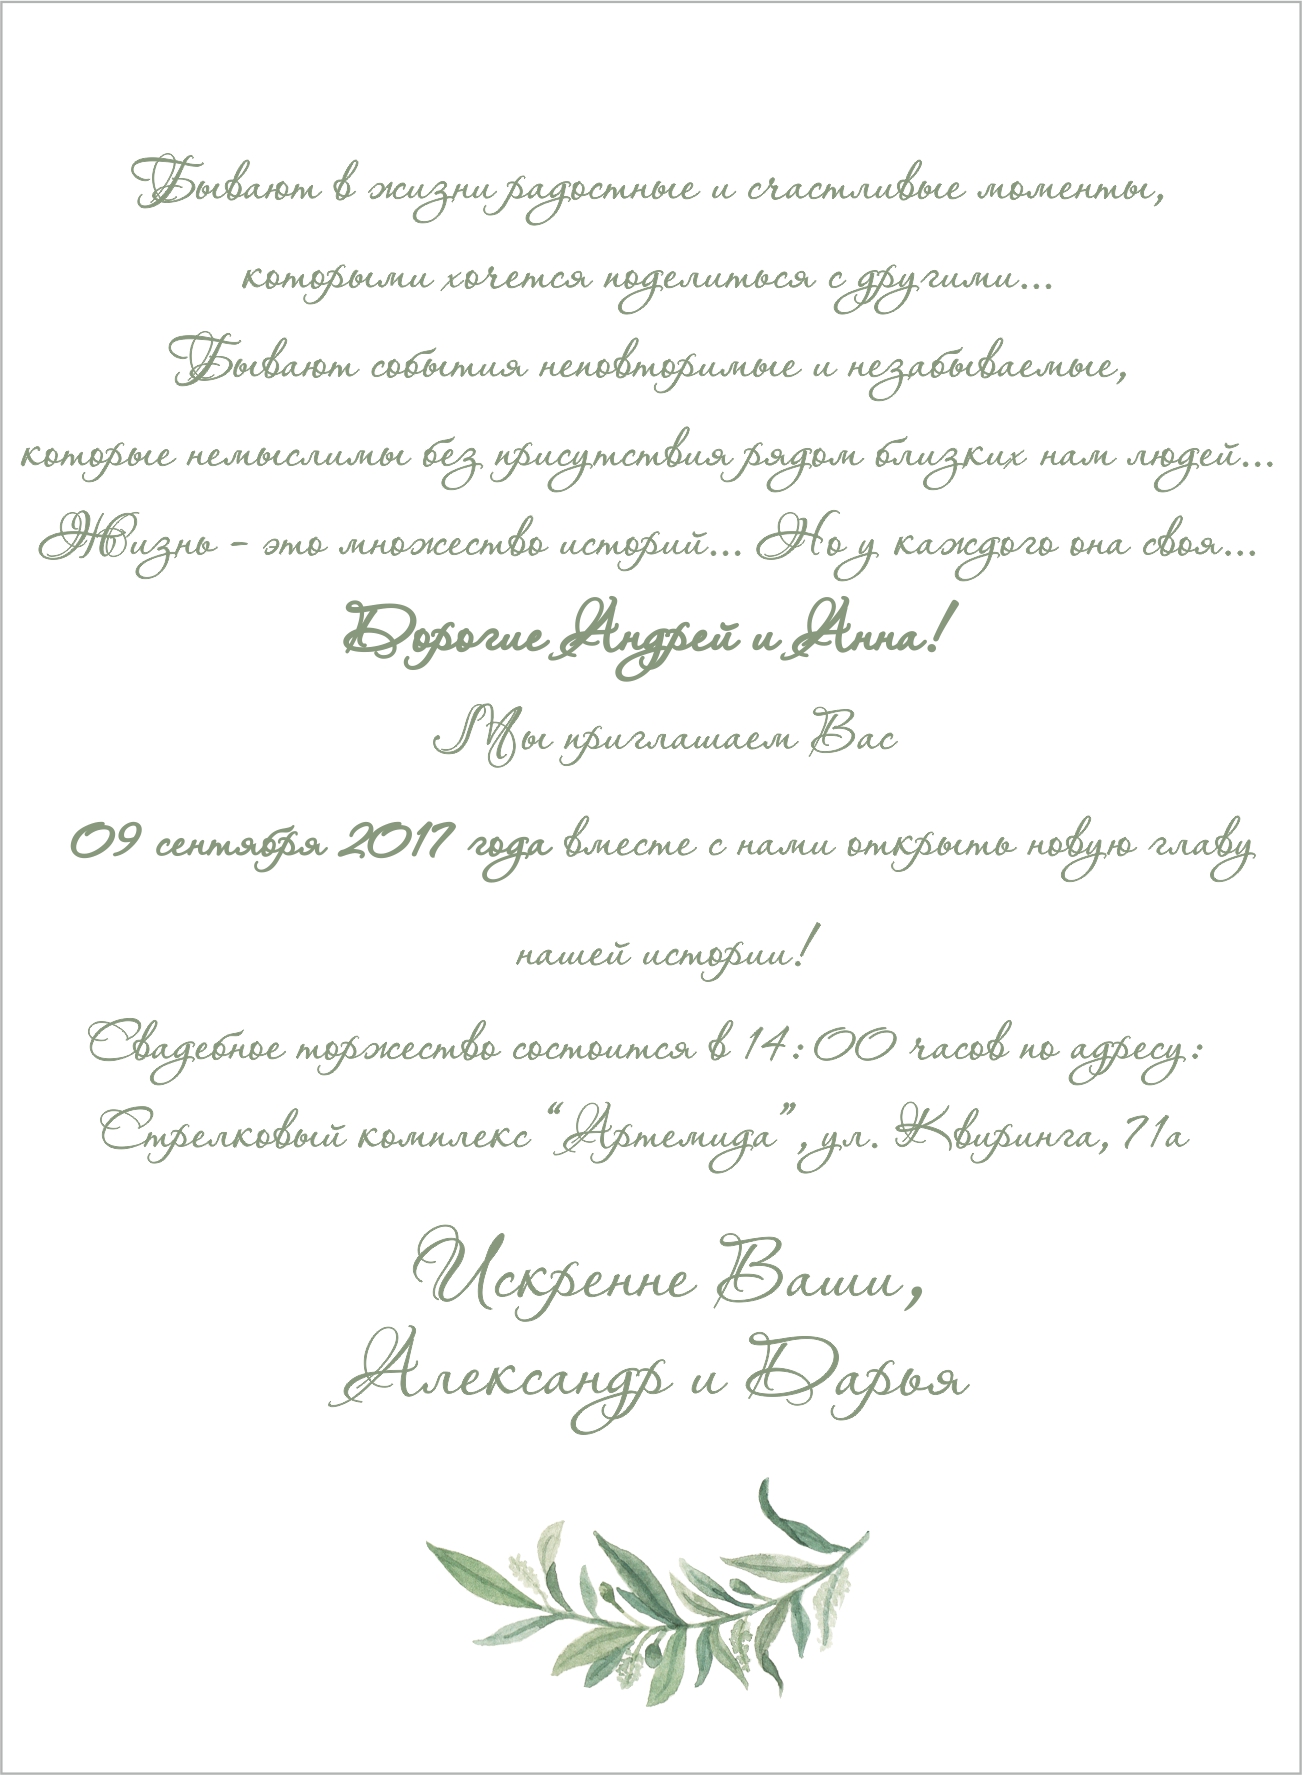 Бывают в жизни радостные и счастливые моменты,
которыми хочется поделиться с другими...
Бывают события неповторимые и незабываемые,
которые немыслимы без присутствия рядом близких нам людей...
Жизнь - это множество историй... Но у каждого она своя...
Дорогие Андрей и Анна!
Мы приглашаем Вас
09 сентября 2017 года вместе с нами открыть новую главу
нашей истории!
Свадебное торжество состоится в 14:00 часов по адресу:
Стрелковый комплекс “Артемида”, ул. Квиринга, 71а
Искренне Ваши,
Александр и Дарья